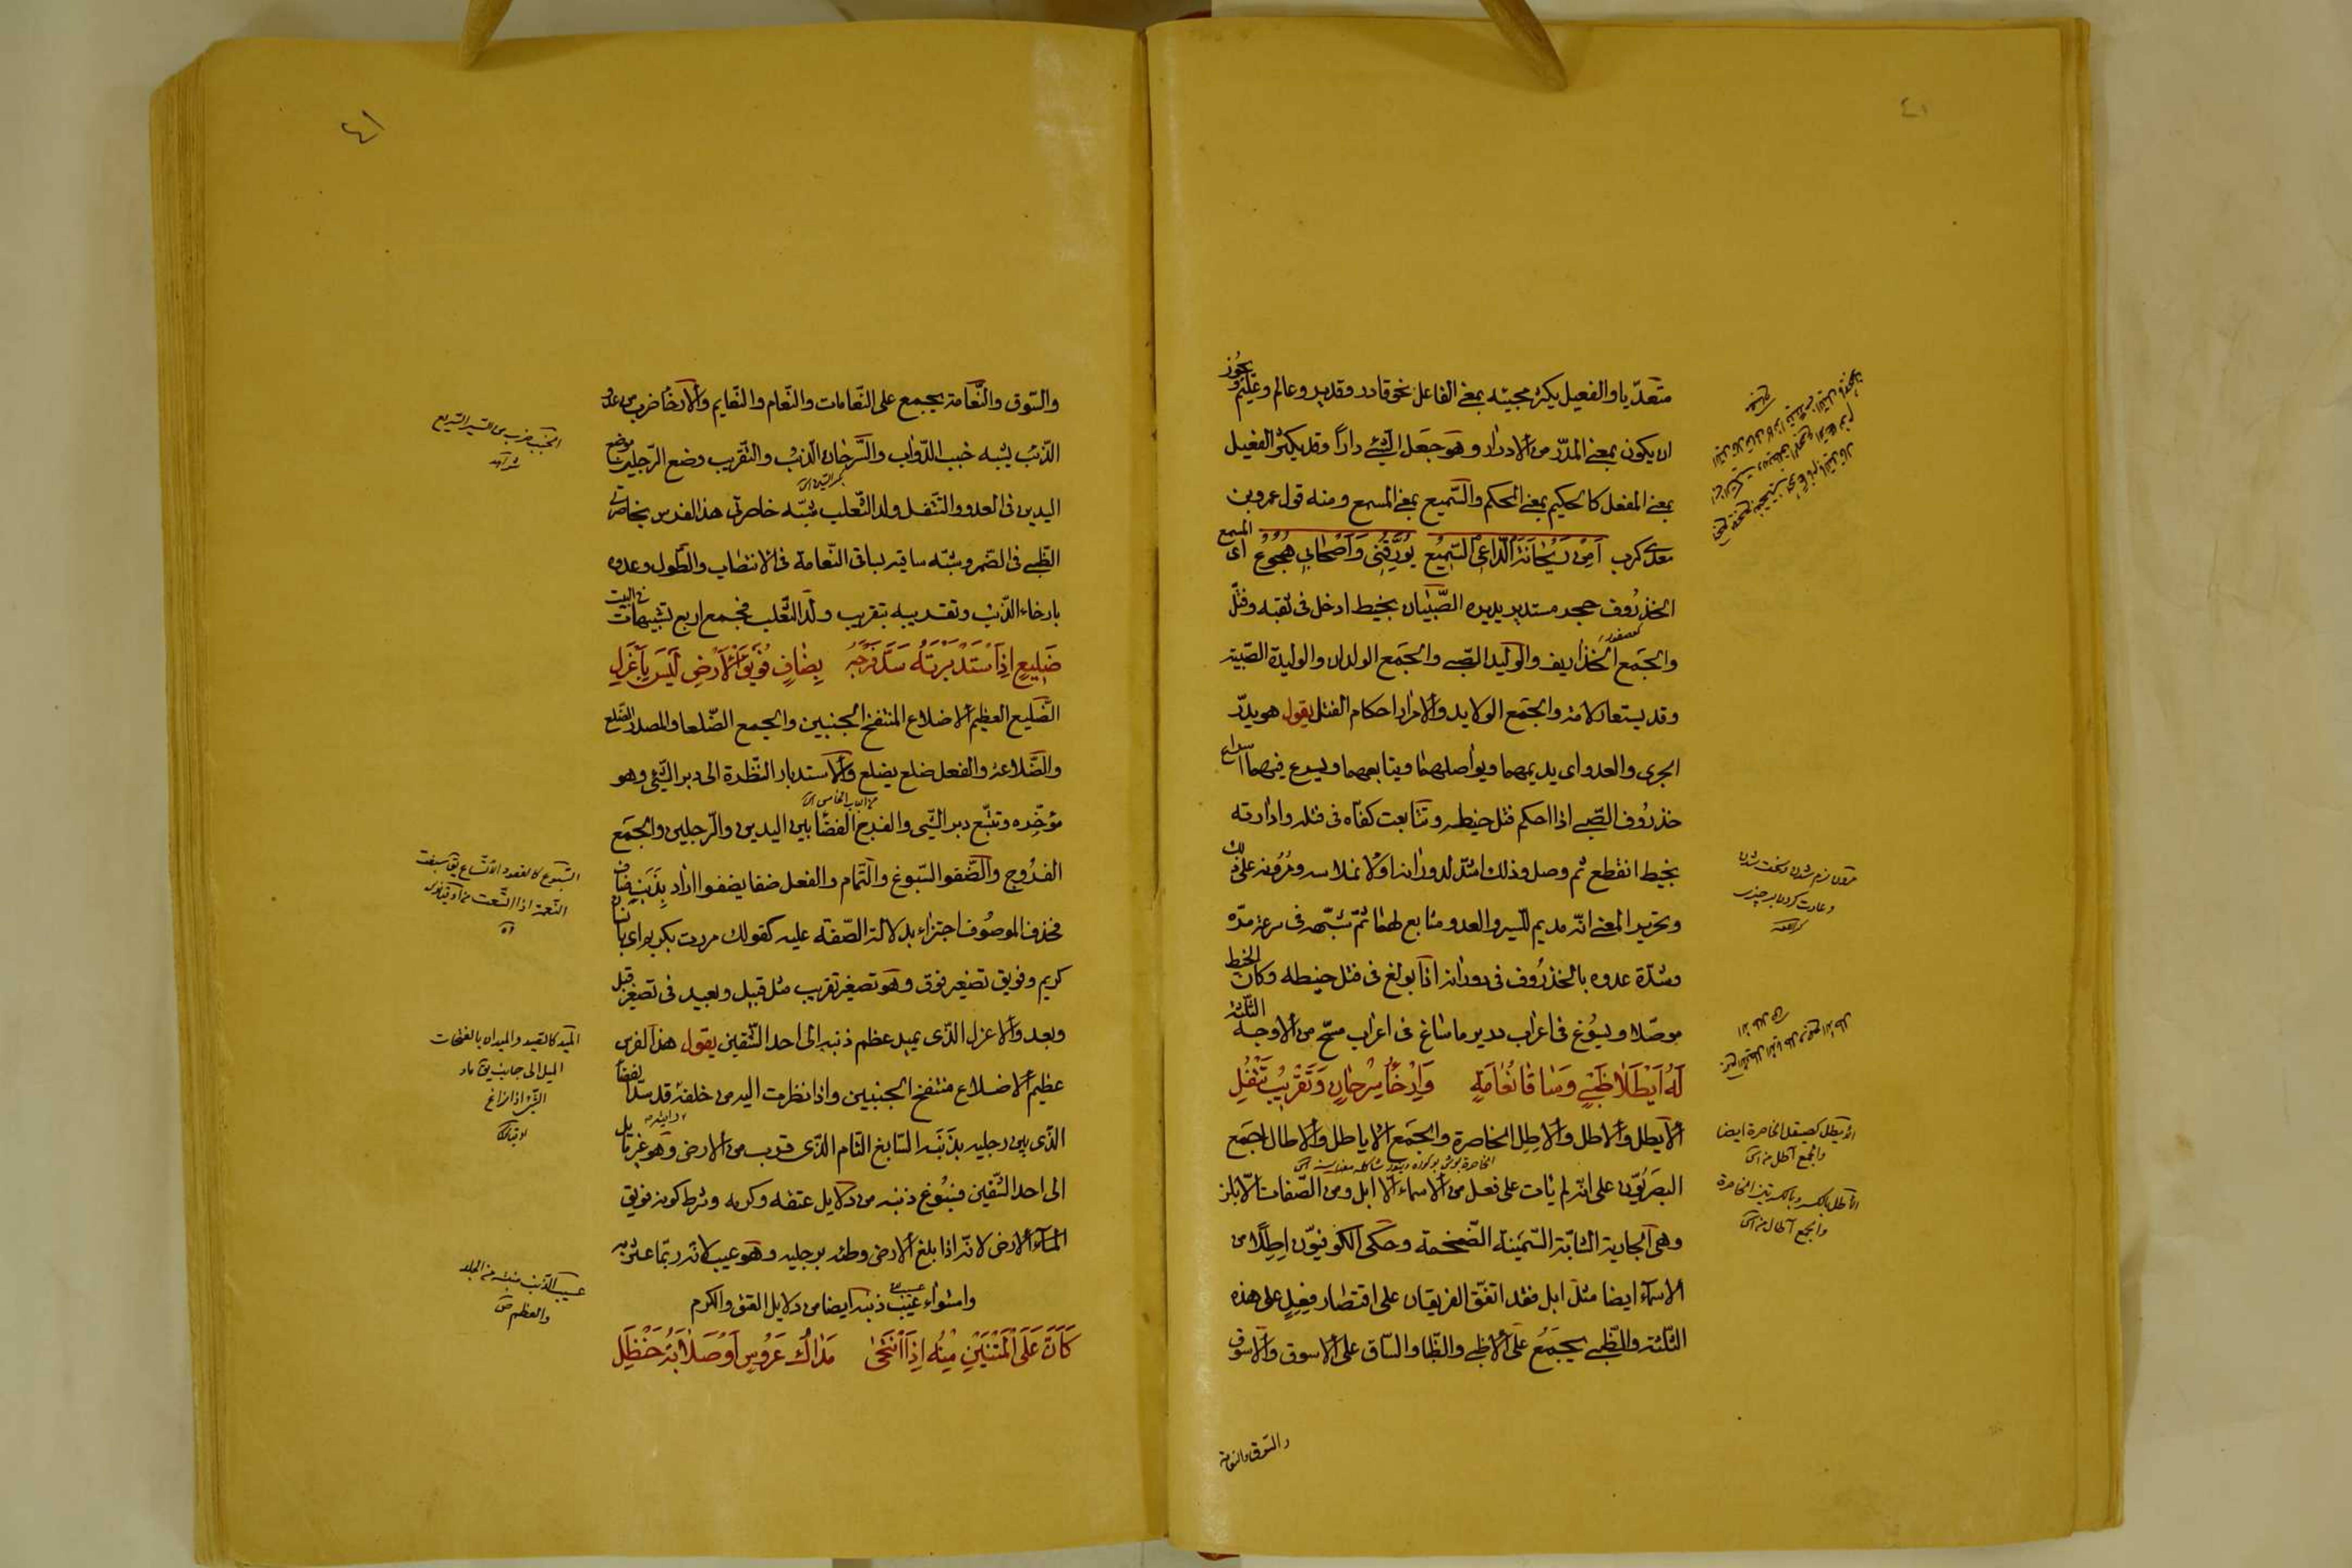 متعدّيا والفعيل يكثر مجيئه بمعنى الفاعل نحو قادر وقدير وعالم وعليم ويجوز
ان يكون بمعنى المدرّ من الادرار وهو جعل الشئ دارّاً وقد يكثر الفعيل
بمعنى المفعل كالحكيم بمعنى المحكم والسّميع بمعنى المسمع ومنه قول عمرو بن
معدى كرب أَمِنْ رَيْحَانَةَ الدّاعِى السَّمِيْعُ يُوَرِّقُنِى وَاَصْحَابِى هُجُوعُ اى المسمع
الخذروف حجر مستدير يديره الصّبيان بخيط ادخل فى ثقبه وفتل
كعصفور
والجمع الخذاريف والوليد الصّبى والجمع الولدان والوليدة الصّبية
وقد يستعار للامة والجمع الولايد والامرار احكام الفتل يقول هو يدرّ
الجرى والعدو اى يديمهما ويواصلهما ويتابعهما ويسرع فيهما اسراع
خذروف الصّبى اذا احكم فتل خيطه وتتابعت كفاه فى فتله وادارته
بخيط انقطع ثم وصل وذلك اشدّ لدورانه لانملاسه ومرونه على ذلك
وتحرير المعنى انّه مديم للسير والعدو متابع لهما ثمّ شبّهه فى سرعة مرّه
وشدّة عدوه بالخذروف فى دورانه اذا بولغ فى فتل خيطه وكان الخيط
موصّلا ويسوغ فى اعراب درير ما ساغ فى اعراب مسحّ من الاوجه الثلثة
لَهُ اَيْطَلَا ظَبْىٍ وَسَاقَا نَعَامَةٍ وَاِرْخَاءُ سِرْحَانٍ وَتَقْرِيْبُ تَتْفُلِ
الايطل والاطل والاِطِل الخاصرة والجمع الاياطل والاطال اجمع
البصريّون على انّه لم يأت على فعل من الاسماء الا ابل ومن الصّفات الا بلز
وهى الجارية الشابّة السّمينة الضّخمة وحكى الكوفيّون اِطِلاً من
الاسماء ايضا مثل ابل فقد اتفق الفريقان على اقتصار فِعِل على هذه
الثلثة والظّبى يجمع على الاظبى والظّبا والسّاق على الاسوق والاسؤق
والسّوق والنّعامة
مرون نرم شدن وسخت شدن
وعادت كردن بر چيزى
الايطل كصيقل الخاصرة ايضا
والجمع
والجمع آطال
٤١
والسّوق والنّعامة يجمع على النّعامات والنّعام والنّعايم والارخاء ضرب من عدو
الذّئب يشبه خبب الدّواب والسّرحان الذّئب والتّقريب وضع الرّجلين موضع
اليدين فى العدو والتّتفل ولد الثّعلب شبّه خاصرتى هذا الفرس بخاصرتى
الظّبى فى الضّمر وشبّه ساقيه بساقى النّعامة فى الانتصاب والطّول وعدوه
بارخاء الذّئب وتقريبه بتقريب ولد الثّعلب فجمع اربع تشبيهات فى البيت
ضَلِيعٍ اِذَا اسْتَدْبَرْتَهُ سَدَّ فَرْجَهُ بِضَافٍ فُوَيْقَ الْاَرْضِ لَيْسَ بِاَعْزَلِ
الضّليع العظيم الاضلاع المنتفخ الجنبين والجمع الضّلعا والمصدر الضّلع
والضّلاعة والفعل ضلع يضلع والاستدبار النّظرة الى دبر الشّئ وهو
مؤخّره وتتبّع دبر الشّئ والفرج الفضا بين اليدين والرّجلين والجمع
الفروج والضّفو السّبوغ والتّمام والفعل ضفا يضفو اراد بذنب ضاف
فحذف الموصوف اجتزاء بدلالة الصّفة عليه كقولك مررت بكريم اى بانسان
كريم وفويق تصغير فوق وهو تصغير تقريب مثل قبيل وبعيد فى تصغير قبل
وبعد والاعزل الّذى يميل عظم ذنبه الى احد الشّقين يقول هذا الفرس
عظيم الاضلاع منتفخ الجنبين واذا نظرت اليه من خلفه قد سدّ الفضاء
الّذى بين رجليه بذنبه السّابغ التّام الّذى قرب من الارض وهو غير مايل
الى احد الشّقين فسبوغ ذنبه من دلايل عتقه وكرمه وشرط كونه فويق
الارض لانّه اذا بلغ الارض وطئه برجليه وهو عيب لانّه ربّما عثر به
واستواء عسيب ذنبه ايضا من دلايل العتق والكرم
كَاَنَّ عَلَى الْمَتْنَيْنِ مِنْهُ اِذَا انْتَحَى مَدَاكُ عَرُوسٍ اَوْ صَلَايَةُ حَنْظَلِ
الخبب ضرب من السّير السّريع
الميد كالقيد والميدان بالفتحات
الميل الى جانب
عسيب الذّنب منبته من الجلد
والعظم
٤١